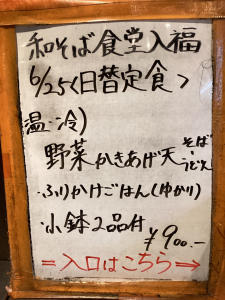 和そば食堂入福
6/25<日替定食>
温・冷)
野菜かきあげ天 そば・うどん
・ふりかけごはん(ゆかり)
・小鉢2品付
¥900.-
=入口はこちら⇒